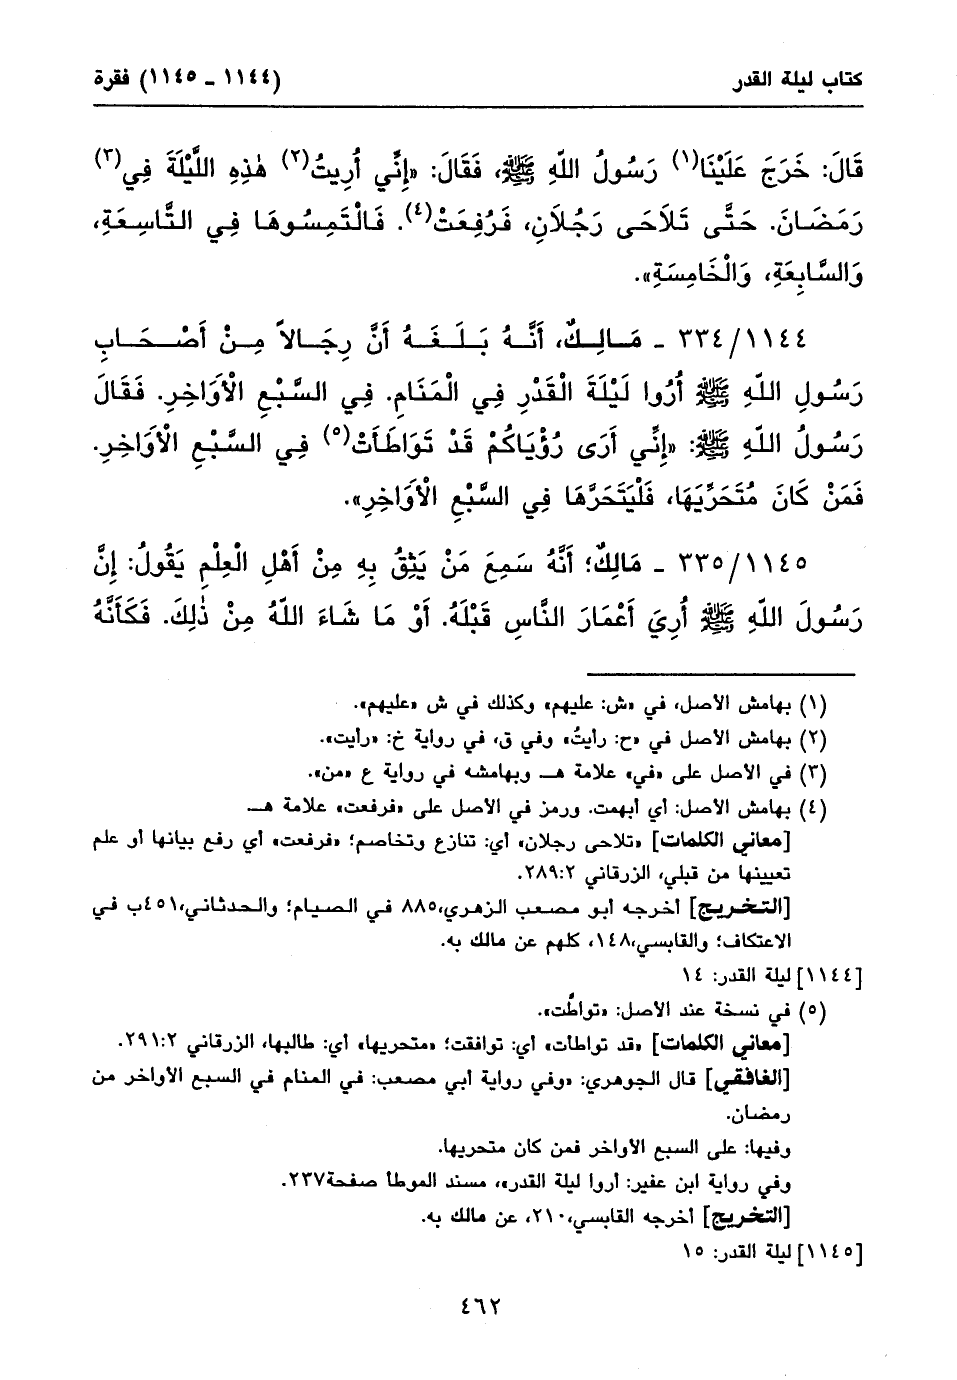 كتاب ليلة القدر (١١٤٤ - ١١٤٥) فقرة
قَالَ: خَرَجَ عَلَيْنَا(١) رَسُولُ اللّهِ ﷺ، فَقَالَ: «إِنِّي أُرِيتُ(٢) هٰذِهِ اللَّيْلَةَ فِي(٣)
رَمَضَانَ. حَتَّى تَلَاحَى رَجُلَانِ، فَرُفِعَتْ(٤). فَالْتَمِسُوهَا فِي التَّاسِعَةِ،
وَالسَّابِعَةِ، وَالْخَامِسَةِ».
٣٣٤/١١٤٤ - مَالِكٌ، أَنَّهُ بَلَغَهُ أَنَّ رِجَالاً مِنْ أَصْحَابِ
رَسُولِ اللّهِ ﷺ أُرُوا لَيْلَةَ الْقَدْرِ فِي الْمَنَامِ. فِي السَّبْعِ الْأَوَاخِرِ. فَقَالَ
رَسُولُ اللّهِ ﷺ: «إِنِّي أَرَى رُؤْيَاكُمْ قَدْ تَوَاطَأَتْ(٥) فِي السَّبْعِ الْأَوَاخِرِ.
فَمَنْ كَانَ مُتَحَرِّيَهَا، فَلْيَتَحَرَّهَا فِي السَّبْعِ الْأَوَاخِرِ».
٣٣٥/١١٤٥ - مَالِكٌ؛ أَنَّهُ سَمِعَ مَنْ يَثِقُ بِهِ مِنْ أَهْلِ الْعِلْمِ يَقُولُ: إِنَّ
رَسُولَ اللّهِ ﷺ أُرِيَ أَعْمَارَ النَّاسِ قَبْلَهُ. أَوْ مَا شَاءَ اللّهُ مِنْ ذٰلِكَ. فَكَأَنَّهُ
(١) بهامش الأصل، في «ش: عليهم» وكذلك في ش «عليهم».
(٢) بهامش الأصل في «ح: رأيتُ» وفي ق، في رواية خ: «رأيت».
(٣) في الأصل على «في» علامة هـ وبهامشه في رواية ع «من».
(٤) بهامش الأصل: أي أبهمت. ورمز في الأصل على «فرفعت» علامة هـ
[معاني الكلمات] «تلاحى رجلان» أي: تنازع وتخاصم؛ «فرفعت» أي رفع بيانها أو علم
تعيينها من قبلي، الزرقاني ٢٨٩:٢.
[التخريج] أخرجه أبو مصعب الزهري،٨٨٥ في الصيام؛ والحدثاني،٤٥١ب في
الاعتكاف؛ والقابسي،١٤٨، كلهم عن مالك به.
[١١٤٤] ليلة القدر: ١٤
(٥) في نسخة عند الأصل: «تواطَّت».
[معاني الكلمات] «قد تواطأت» أي: توافقت؛ «متحريها» أي: طالبها، الزرقاني ٢٩١:٢.
[الغافقي] قال الجوهري: «وفي رواية أبي مصعب: في المنام في السبع الأواخر من
رمضان.
وفيها: على السبع الأواخر فمن كان متحريها.
وفي رواية ابن عفير: أروا ليلة القدر»، مسند الموطأ صفحة٢٣٧.
[التخريج] أخرجه القابسي،٢١٠، عن مالك به.
[١١٤٥] ليلة القدر: ١٥
٤٦٢